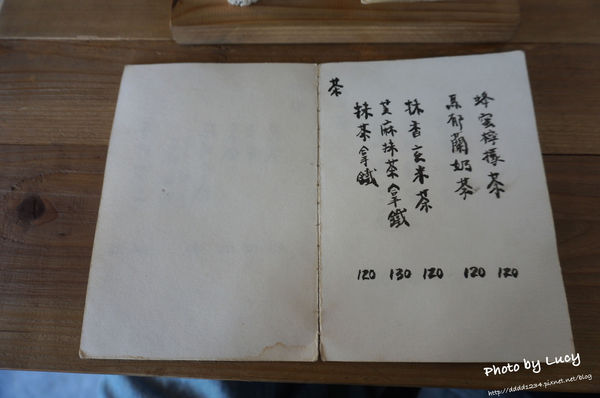 茶
抹茶拿鐵 120
芝麻抹茶拿鐵 130
抹香玄米茶 120
馬郁蘭奶茶 120
蜂蜜檸檬茶 120
Photo by Lucy
http://dddd1234.pixnet.net/blog